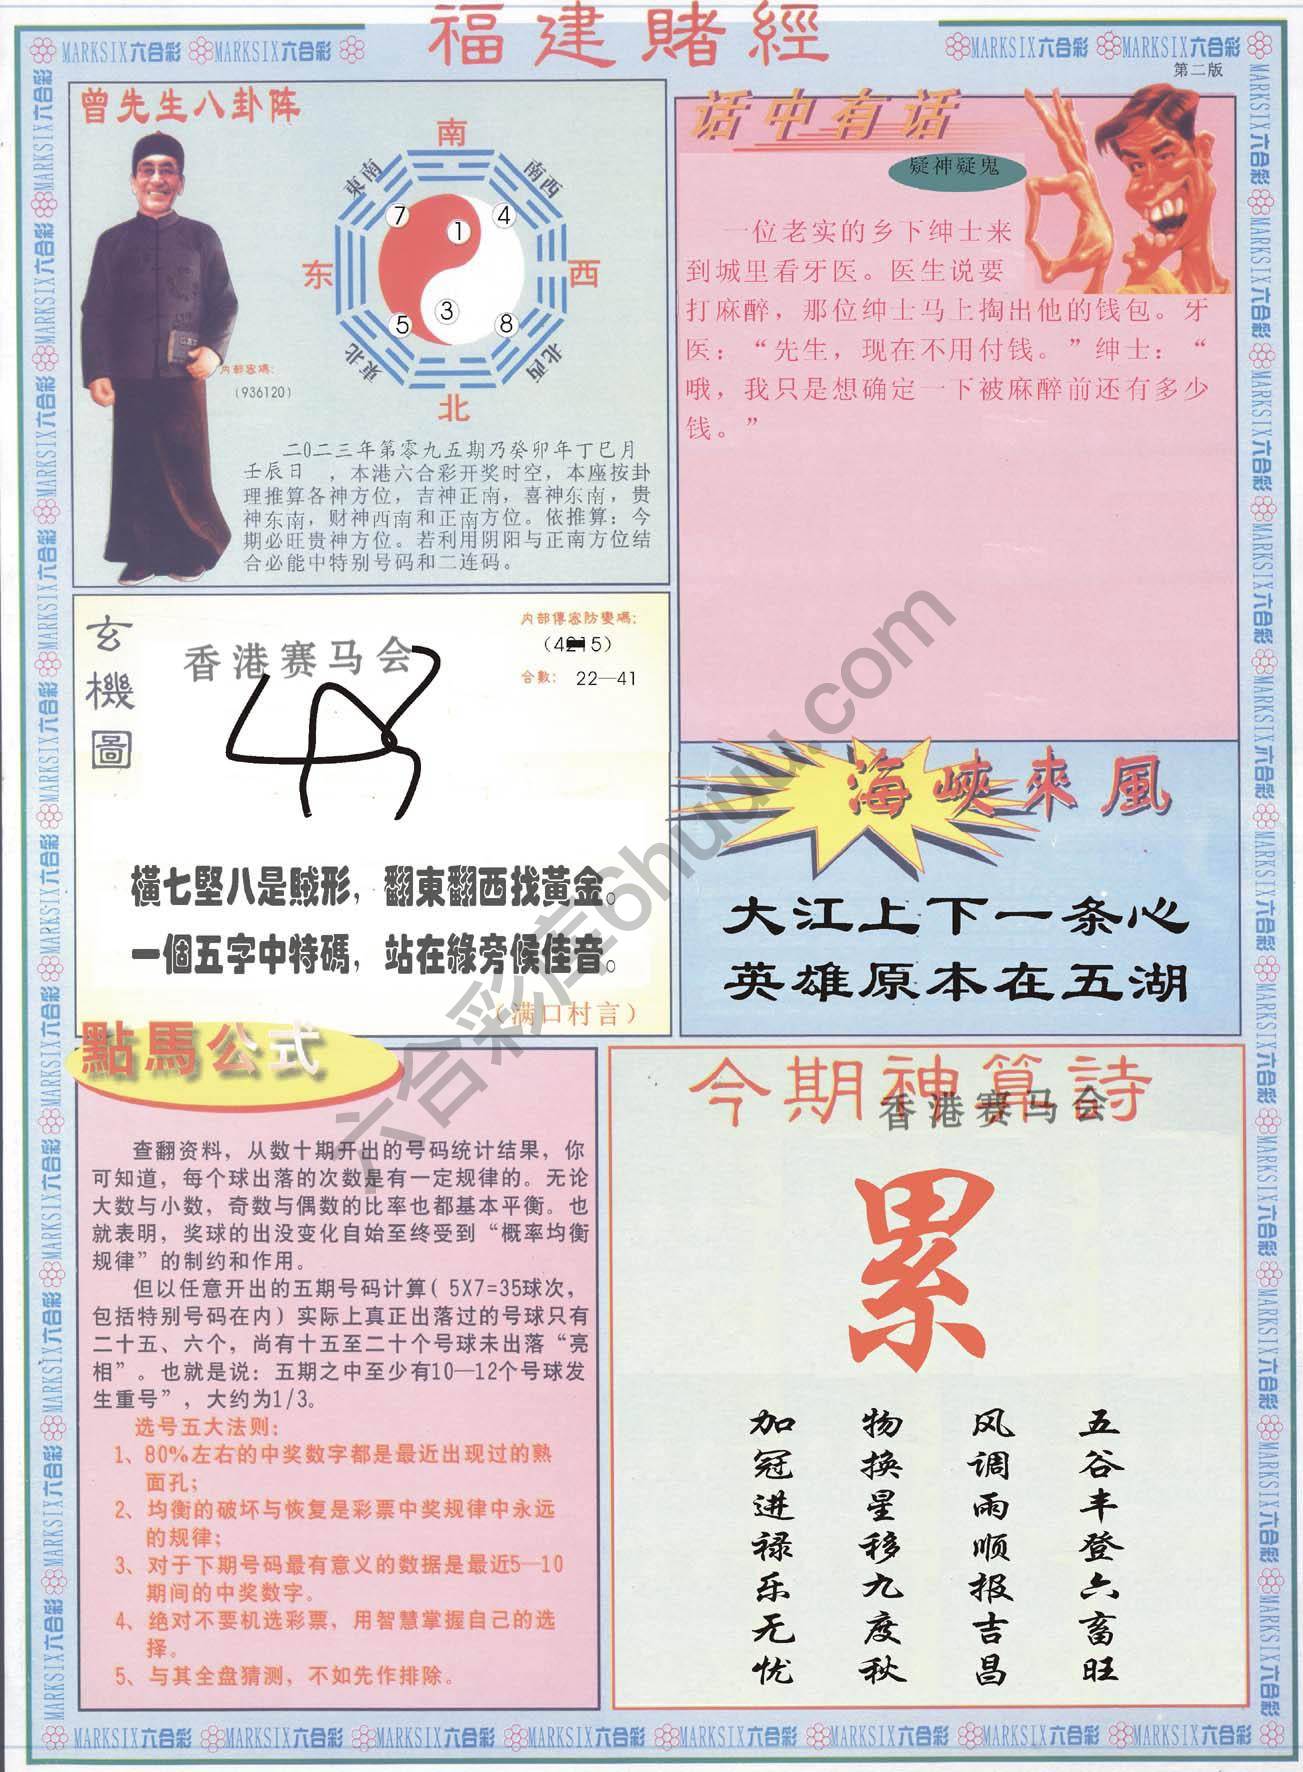 福建賭經
MARKSIX六合彩 MARKSIX六合彩
MARKSIX六合彩 MARKSIX六合彩
第二版
曾先生八卦阵
南
東南
南西
7
1
4
东
西
3
5
8
東北
北西
北
内部密碼:
(936120)
二0二三年第零九五期乃癸卯年丁巳月
壬辰日 ，本港六合彩开奖时空，本座按卦
理推算各神方位，吉神正南，喜神东南，贵
神东南，财神西南和正南方位。依推算：今
期必旺贵神方位。若利用阴阳与正南方位结
合必能中特别号码和二连码。
话中有话
疑神疑鬼
一位老实的乡下绅士来
到城里看牙医。医生说要
打麻醉，那位绅士马上掏出他的钱包。牙
医：“先生，现在不用付钱。”绅士：“
哦，我只是想确定一下被麻醉前还有多少
钱。”
玄機圖
香港赛马会
内部傳密防變碼:
合數: 22—41
橫七堅八是賊形，翻東翻西找黃金。
一個五字中特碼，站在緣旁候佳音。
（满口村言）
海峽來風
大江上下一条心
英雄原本在五湖
點馬公式
查翻资料，从数十期开出的号码统计结果，你
可知道，每个球出落的次数是有一定规律的。无论
大数与小数，奇数与偶数的比率也都基本平衡。也
就表明，奖球的出没变化自始至终受到“概率均衡
规律”的制约和作用。
但以任意开出的五期号码计算( 5X7=35球次，
包括特别号码在内) 实际上真正出落过的号球只有
二十五、六个，尚有十五至二十个号球未出落“亮
相”。也就是说：五期之中至少有10—12个号球发
生重号”，大约为1/3。
选号五大法则：
1、80%左右的中奖数字都是最近出现过的熟
面孔；
2、均衡的破坏与恢复是彩票中奖规律中永远
的规律；
3、对于下期号码最有意义的数据是最近5—10
期间的中奖数字。
4、绝对不要机选彩票，用智慧掌握自己的选
择。
5、与其全盘猜测，不如先作排除。
今期神算詩
香港赛马会
累
五谷丰登六畜旺
风调雨顺报吉昌
物换星移九度秋
加冠进禄乐无忧
六合彩库6huuu.com
MARKSIX六合彩 MARKSIX六合彩 MARKSIX六合彩 MARKSIX六合彩 MARKSIX六合彩 MARKSIX六合彩 MARKSIX六合彩 MARKSIX六合彩